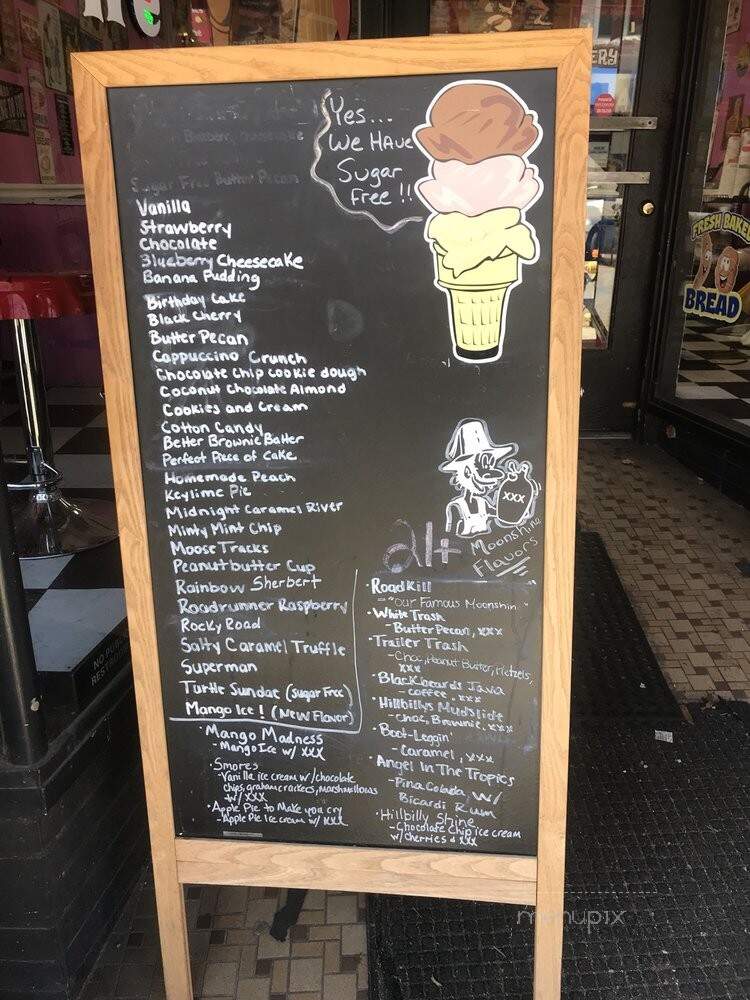 Yes...
We Have
Sugar
Free !!
Sugar Free Butter Pecan
Vanilla
Strawberry
Chocolate
Blueberry Cheesecake
Banana Pudding
Birthday Cake
Black Cherry
Butter Pecan
Cappuccino Crunch
Chocolate Chip cookie dough
Coconut Chocolate Almond
Cookies and Cream
Cotton Candy
Better Brownie Batter
Perfect Piece of Cake
Homemade Peach
Keylime Pie
Midnight Caramel River
Minty Mint Chip
Moose Tracks
Peanutbutter Cup
Rainbow Sherbert
Roadrunner Raspberry
Rocky Road
Salty Caramel Truffle
Superman
Turtle Sundae (Sugar Free)
Mango Ice! (New Flavor)
·Mango Madness
-Mango Ice w/ XXX
·Smores
-Vanilla ice cream w/chocolate
chips, graham crackers, marshmallows
w/ XXX
·Apple Pie to Make you cry
-Apple Pie Ice cream w/ XXX
XXX
21+
Moonshine
Flavors
·RoadKill
-"Our Famous Moonshine"
·White Trash
-Butter Pecan, xxx
·Trailer Trash
-Choc, Peanut Butter, Pretzels,
xxx
·Blackbeards Java
-coffee, xxx
·Hillbillys Mudslide
-choc, Brownie, xxx
·Boot-Leggin'
-Caramel, xxx
·Angel In The Tropics
-Pina Colada, w/
Bicardi Rum
·Hillbilly Shine
-Chocolate Chip ice cream
w/ Cherries & XXX
FRESH BAKED
BREAD
menupix